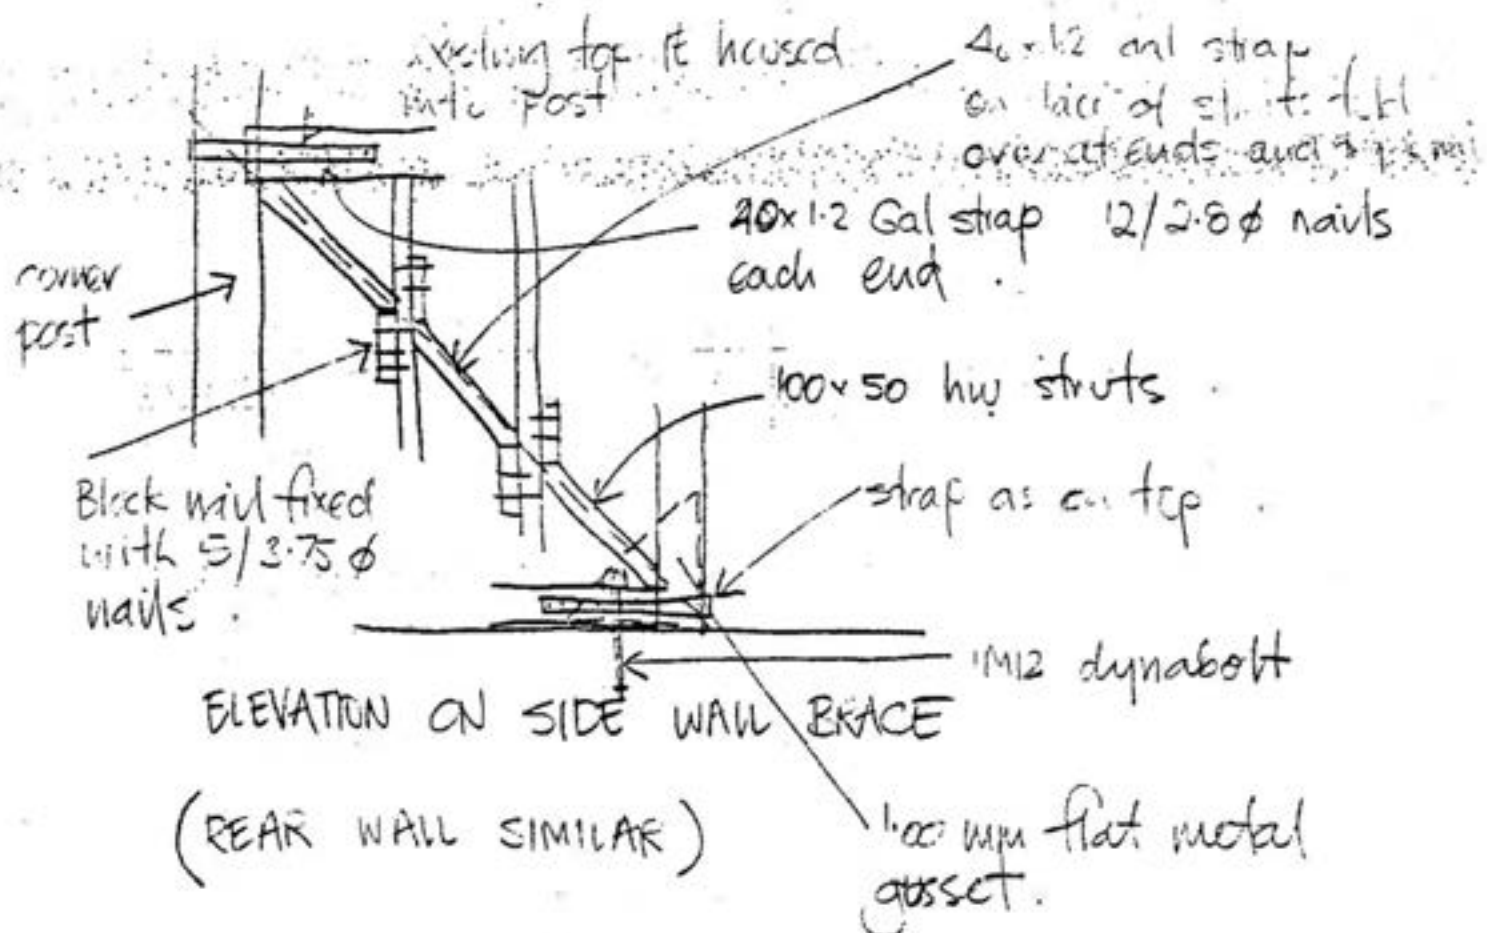 top PL housed
into post
gal strap
over at ends and
40x1.2 Gal strap 12/2.8ϕ nails
each end.
corner
post
100x50 hw struts
Block nail fixed
with 5/3.75ϕ
nails.
strap as on top.
M12 dynabolt
ELEVATION ON SIDE WALL BRACE
(REAR WALL SIMILAR)
1.00 mm flat metal
gusset.